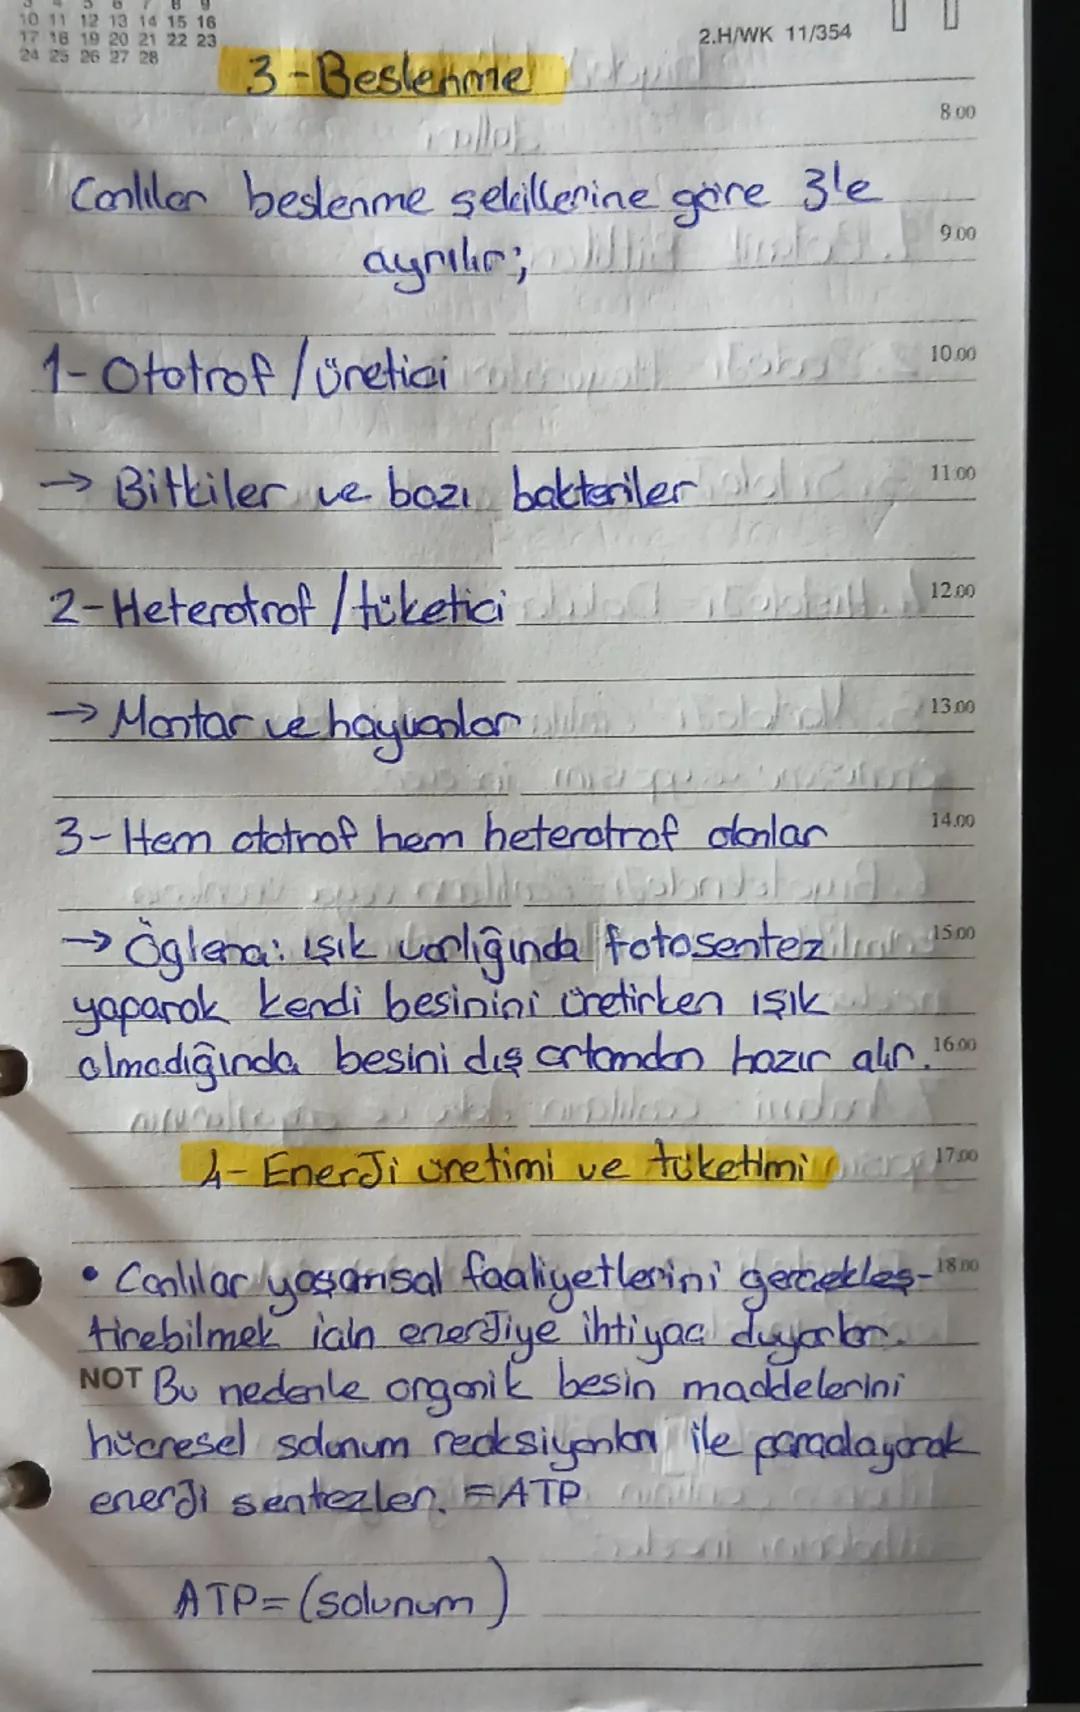 10 11 12 13 14 15 16
17 18 19 20 21 22 23
24 25 26 27 28
2.H/WK 11/354
3-Beslenme
8.00
Canlılar beslenme şekillerine göre 3'e
9.00
ayrılır;
10.00
1- Ototrof / üretici
11.00
→ Bitkiler ve bazı bakteriler
12.00
2-Heterotrof / tüketici
13.00
→ Mantar ve hayvanlar
14.00
3- Hem ototrof hem heterotrof olanlar
15.00
→ Öglena: ışık varlığında fotosentez
yaparak kendi besinini üretirken ışık
16.00
olmadığında besini dış ortamdan hazır alır.
17.00
4- Enerji üretimi ve tüketimi
18.00
• Canlılar yaşamsal faaliyetlerini gerçekleş-
tirebilmek için enerjiye ihtiyaç duyarlar.
NOT Bu nedenle organik besin maddelerini
hücresel solunum reaksiyonları ile parçalayarak
enerji sentezler. =ATP
ATP=(solunum)